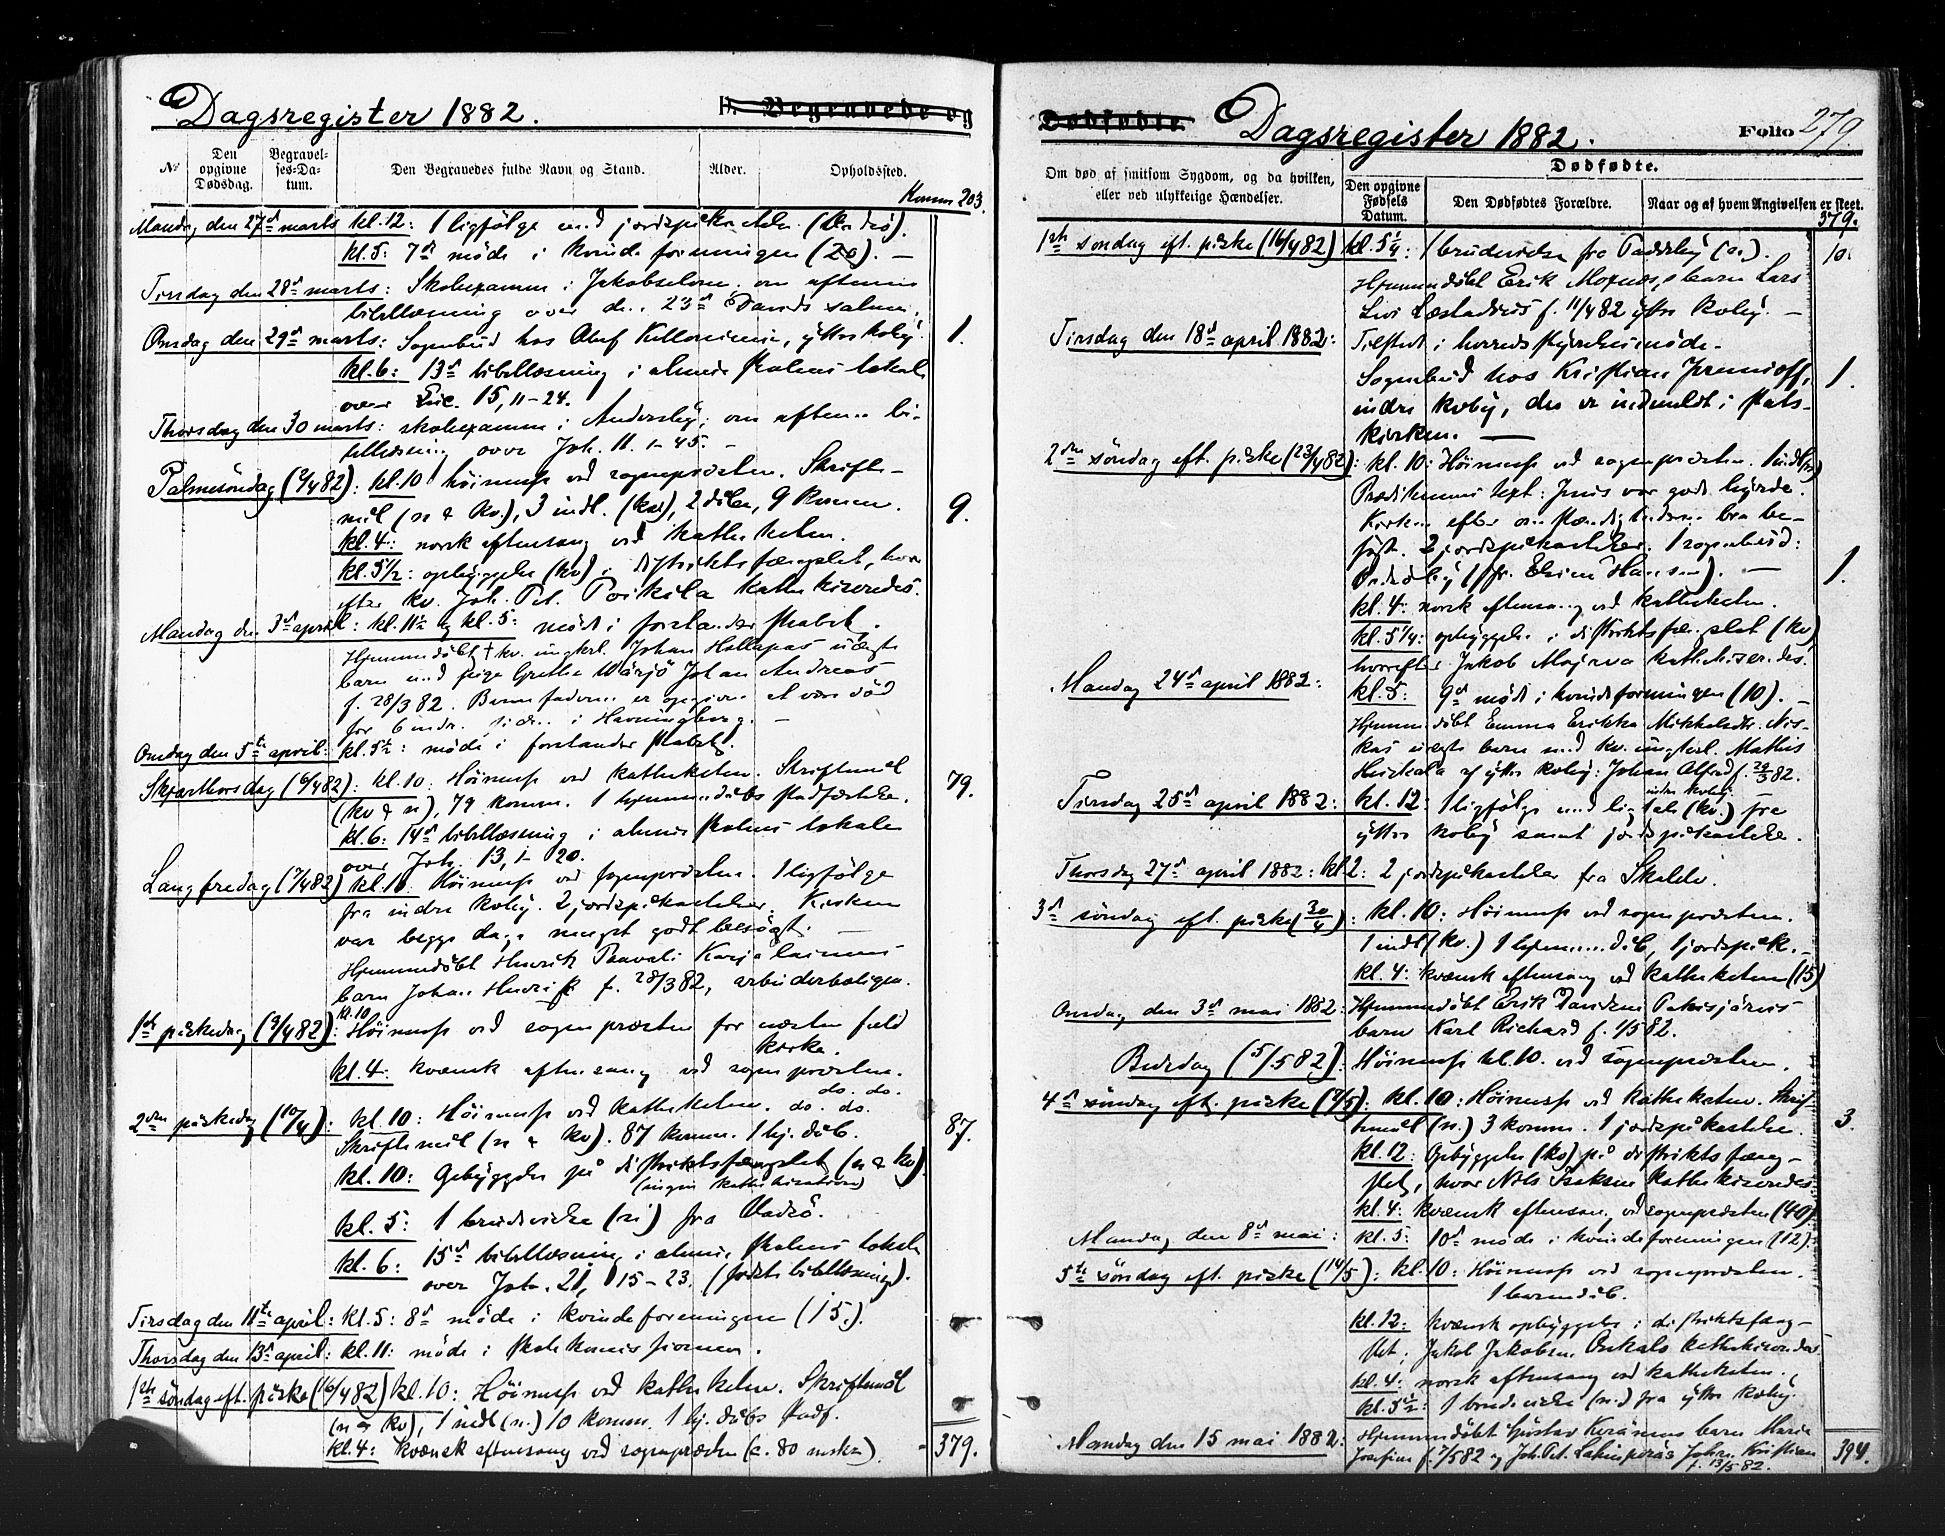 Dagsregister 1882.
D. Begravede og
№
Den opgivne Dødsdag.
Begravelses-Datum.
Den Begravedes fulde Navn og Stand.
Alder.
Opholdssted.
Komm 203.
Mandag den 27d marts kl. 12: 1 ligfølge med jordspaakastelse
kl. 5: 7d møde i kvindeforeningen (20). —
Tirsdag den 28d marts: Skoleexamen i Jakobselven. om aftenen
bibellæsning over den 23d Davids salme.
Onsdag den 29d marts: Sognebud hos Oluf ytre kvby. 1.
kl. 6: 13d bibellæsning i almueskolens lokale
over Luc. 15, 11-24.
Thorsdag den 30 marts: skoleexamen i Andersby; om aftenen bi-
bellæsning over Joh. 11. 1-45. —
Palmesøndag (2/4 82): kl. 10 høimesse ved sognepræsten. Skrifte-
mål (n & kv.), 3 indl. (kv), 2 dåb, 9 komm. 9.
kl. 4: norsk aftensang ved kathekheten.
kl. 5 1/2: opbyggelse (kv) i distriktsfængslet, hvor-
efter kv. Joh. Pet. Poikela kathekiseredes.
Mandag den 3d april: kl. 11 1/2 og kl. 5: møde i forstanderskabet.
Hjemmedøbt † kv. ungkrl. Johan uægte
barn med pige Grethe Johan Andreas
f. 28/3 82. Barnefaderen er opgiven at være død
for 6 mdr. siden i Havningberg. —
Onsdag den 5te april: kl. 5 1/2: møde i forstanderskabet.
Skjærthorsdag (6/4 82): kl. 10: Høimesse ved kathekheten. Skriftemål
(kv & n), 79 komm. 1 hjemmedåbs stadfæstelse. 79.
kl. 6: 14d bibellæsning i almueskolens lokale
over Joh. 13, 1-20.
Langfredag (7/4 82) kl. 10: Høimesse ved sognepræsten. 1 ligfølge
fra indre kvby. 2 jordspåkastelser. Kirken
var begge dage meget godt besøgt. —
Hjemmedøbt Henrik Paavali Karjalainens
barn Johan Henrik f. 28/3 82, arbeiderboligen.
1ste påskedag (9/4 82): kl. 10 Høimesse ved sognepræsten for næsten fuld
kirke.
kl. 4: kvænsk aftensang ved sognepræsten.
do. do.
2den påskedag (10/4): kl. 10: Høimesse ved kathekheten. do. do.
Skriftemål (n & kv). 87 komm. 1 hj. dåb. 87.
kl. 10: Opbyggelse på distriktsfængslet (n & kv).
(ingen kathekisation)
kl. 5: 1 brudevielse (n) fra Vadsø.
kl. 6: 15d bibellæsning i almueskolens lokale
over Joh. 21, 15-23. (sidste bibellæsning).
Tirsdag den 11te april: kl. 5: 8d møde i kvindeforeningen (15.).
Thorsdag den 13d april: kl. 11: møde i skolekommissionen.
1ste søndag eft. påske (16/4 82) kl. 10: Høimesse ved kathekheten. Skriftemål
(n & kv), 1 indl (n.) 10 komm. 1 hj. dåbs stadf.
kl. 4: kvænsk aftensang ved sognepræsten (c. 80 mskr.) 379.
Dødfødte.
Dagsregister 1882.
Folio 279.
Om død af smitsom Sygdom, og da hvilken, eller ved ulykkelige Hændelser.
Dødfødte.
Den opgivne Fødsels Datum.
Den Dødfødtes Forældre.
Naar og af hvem Angivelsen er skeet.
379.
1ste søndag eft. påske (16/4 82) kl. 5 1/4: 1 brudevielse fra Paddeby (n.). 10.
Hjemmedøbt Erik barn Lars
Levi Læstadius f. 11/4 82 ytre kvby. —
Tirsdag den 18d april 1882: Tilstede i herredsstyrelsesmøde.
Sognebud hos Kristian 1.
indre kvby, der er indmeldt i stats-
kirken. —
2den søndag eft. påske (23/4 82): kl. 10: Høimesse ved sognepræsten. 1 indl
Prædikenens text: Jesus vor gode hyrde.
Kirken efter omstændighederne bra be-
søgt. 2 jordspåkastelser. 1 sognebud:
(fr. Hansen). — 1.
kl. 4: norsk aftensang ved kathekheten.
kl. 5 1/4: opbyggelse i distriktsfængslet (kv)
hvorefter Jakob Majava kathekiseredes.
Mandag 24d april 1882: kl. 5: 9d møde i kvindeforeningen (10). —
Hjemmedøbt Emma Erikka Mikkelsdtr.
kas uægte barn med kv. ungkrl. Mathis
af ytre kvby: Johan Alfred f. 29/3 82.
indre kvby.
Tirsdag 25d april 1882: kl. 12: 1 ligfølge med ligtale (kv.) fra
ytre kvby samt jordspåkastelse.
Thorsdag 27d april 1882: kl. 2: 2 jordspåkastelser fra
3d søndag eft. påske (30/4): kl. 10: Høimesse ved sognepræsten.
1 indl (kv.) 1 hjemmedåb, 1 jordspåk. —
kl. 4: kvænsk aftensang ved kathekheten (15)
Onsdag den 3d mai 1882: Hjemmedøbt Erik
barn Karl Richard f. 1/5 82.
Bededag (5/5 82): Høimesse kl. 10. ved sognepræsten.
4d søndag eft. påske (7/5): kl. 10: Høimesse ved kathekheten. Skrif-
temål (n.) 3 komm. 1 jordspåkastelse. 3.
kl. 12: Opbyggelse (kv) på distriktsfæng-
slet, hvor Nils Isaksen kathekiseredes.
kl. 4: kvænsk aftensang ved sognepræsten (40)
Mandag den 8d mai: kl. 5: 10d møde i kvindeforeningen (12).
5te søndag eft. påske (14/5): kl. 10: Høimesse ved sognepræsten.
1 barnedåb.
kl. 12: kvænsk opbyggelse i distriktsfæng-
slet; Jakob Jakobsen kathekiseredes
kl. 4: norsk aftensang ved kathekheten.
kl. 5 1/2: 1 brudevielse (n.) fra ytre kvby.
Mandag den 15 mai 1882: Hjemmedøbt Gustav Keränens barn Maria
Josefine f. 7/5 82 og Joh. Pet. Johan Kristian 394.
f. 13/5 82.